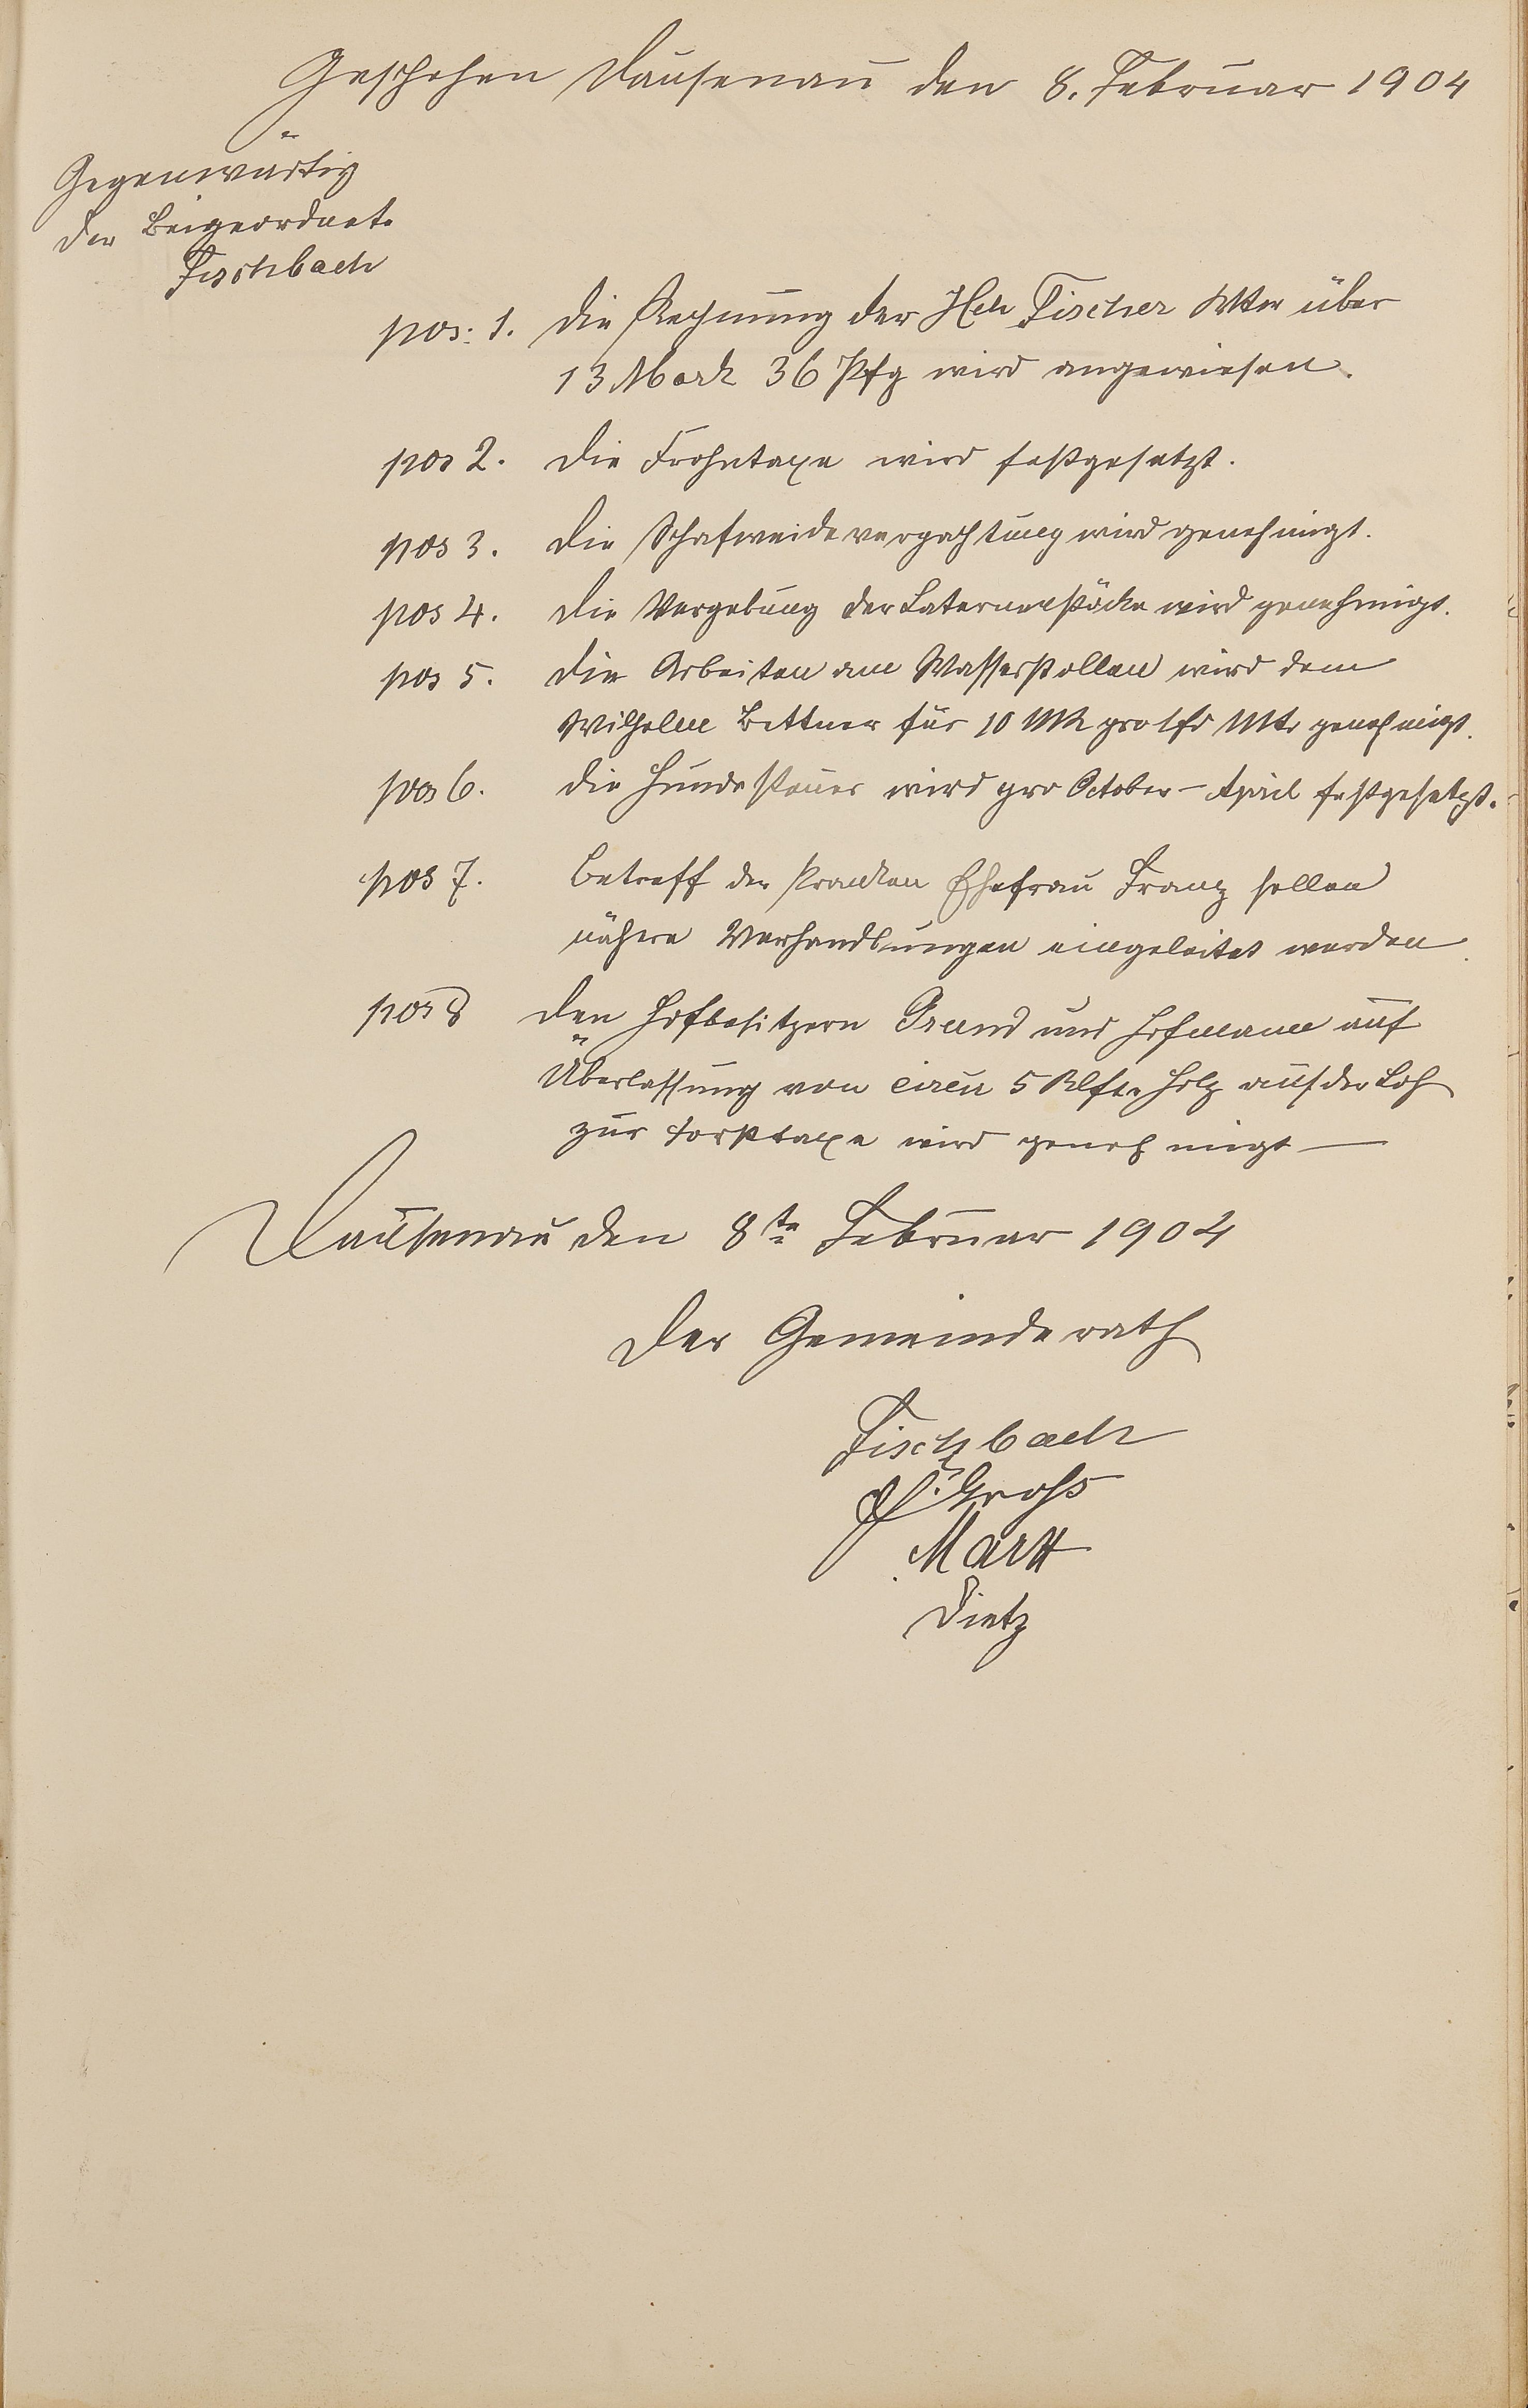 Geschehen Dausenau den 8. Februar 1904
Gegenwärtig
Der Beigeordnete
Fischbach
pos: 1. Die Rechnung der Hch Fischer Wtw über
13 Mark 36 Pfg wird angewiesen.
pos 2. Die Frohntaxe wird festgesetzt.
pos 3. Die Schafweideverpachtung wird genehmigt.
pos 4. Die Vergebung der Laternenstöcke wird genehmigt.
pos 5. Die Arbeiten am Wasserstollen wird dem
Wilhelm Bettner für 10 Mk pro lfd Mtr genehmigt.
pos 6. Die Hundesteuer wird pro October - April festgesetzt.
pos 7. Betreff der kranken Ehefrau Franz sollen
nähere Verhandlungen eingeleitet werden.
pos 8 Den Hofbesitzern und Hofmann auf
Überlassung von circa 5 Klftr Holz auf der Loh
zur Forsttaxe wird genehmigt
Dausenau den 8te Februar 1904
Der Gemeinderath
Fischbach
Gross
Marx
Dietz